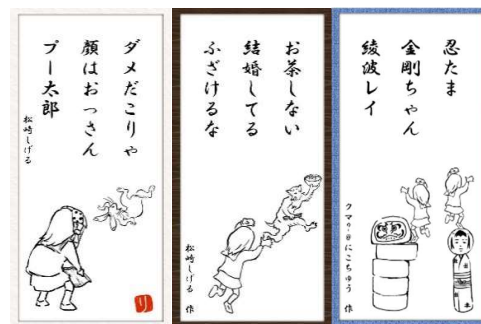 ダメだこりゃ
顔はおっさん
プー太郎
松崎しげる
り
お茶しない
結婚してる
ふざけるな
松崎しげる 作
忍たま
金剛ちゃん
綾波レイ
クマ にこちゅう 作